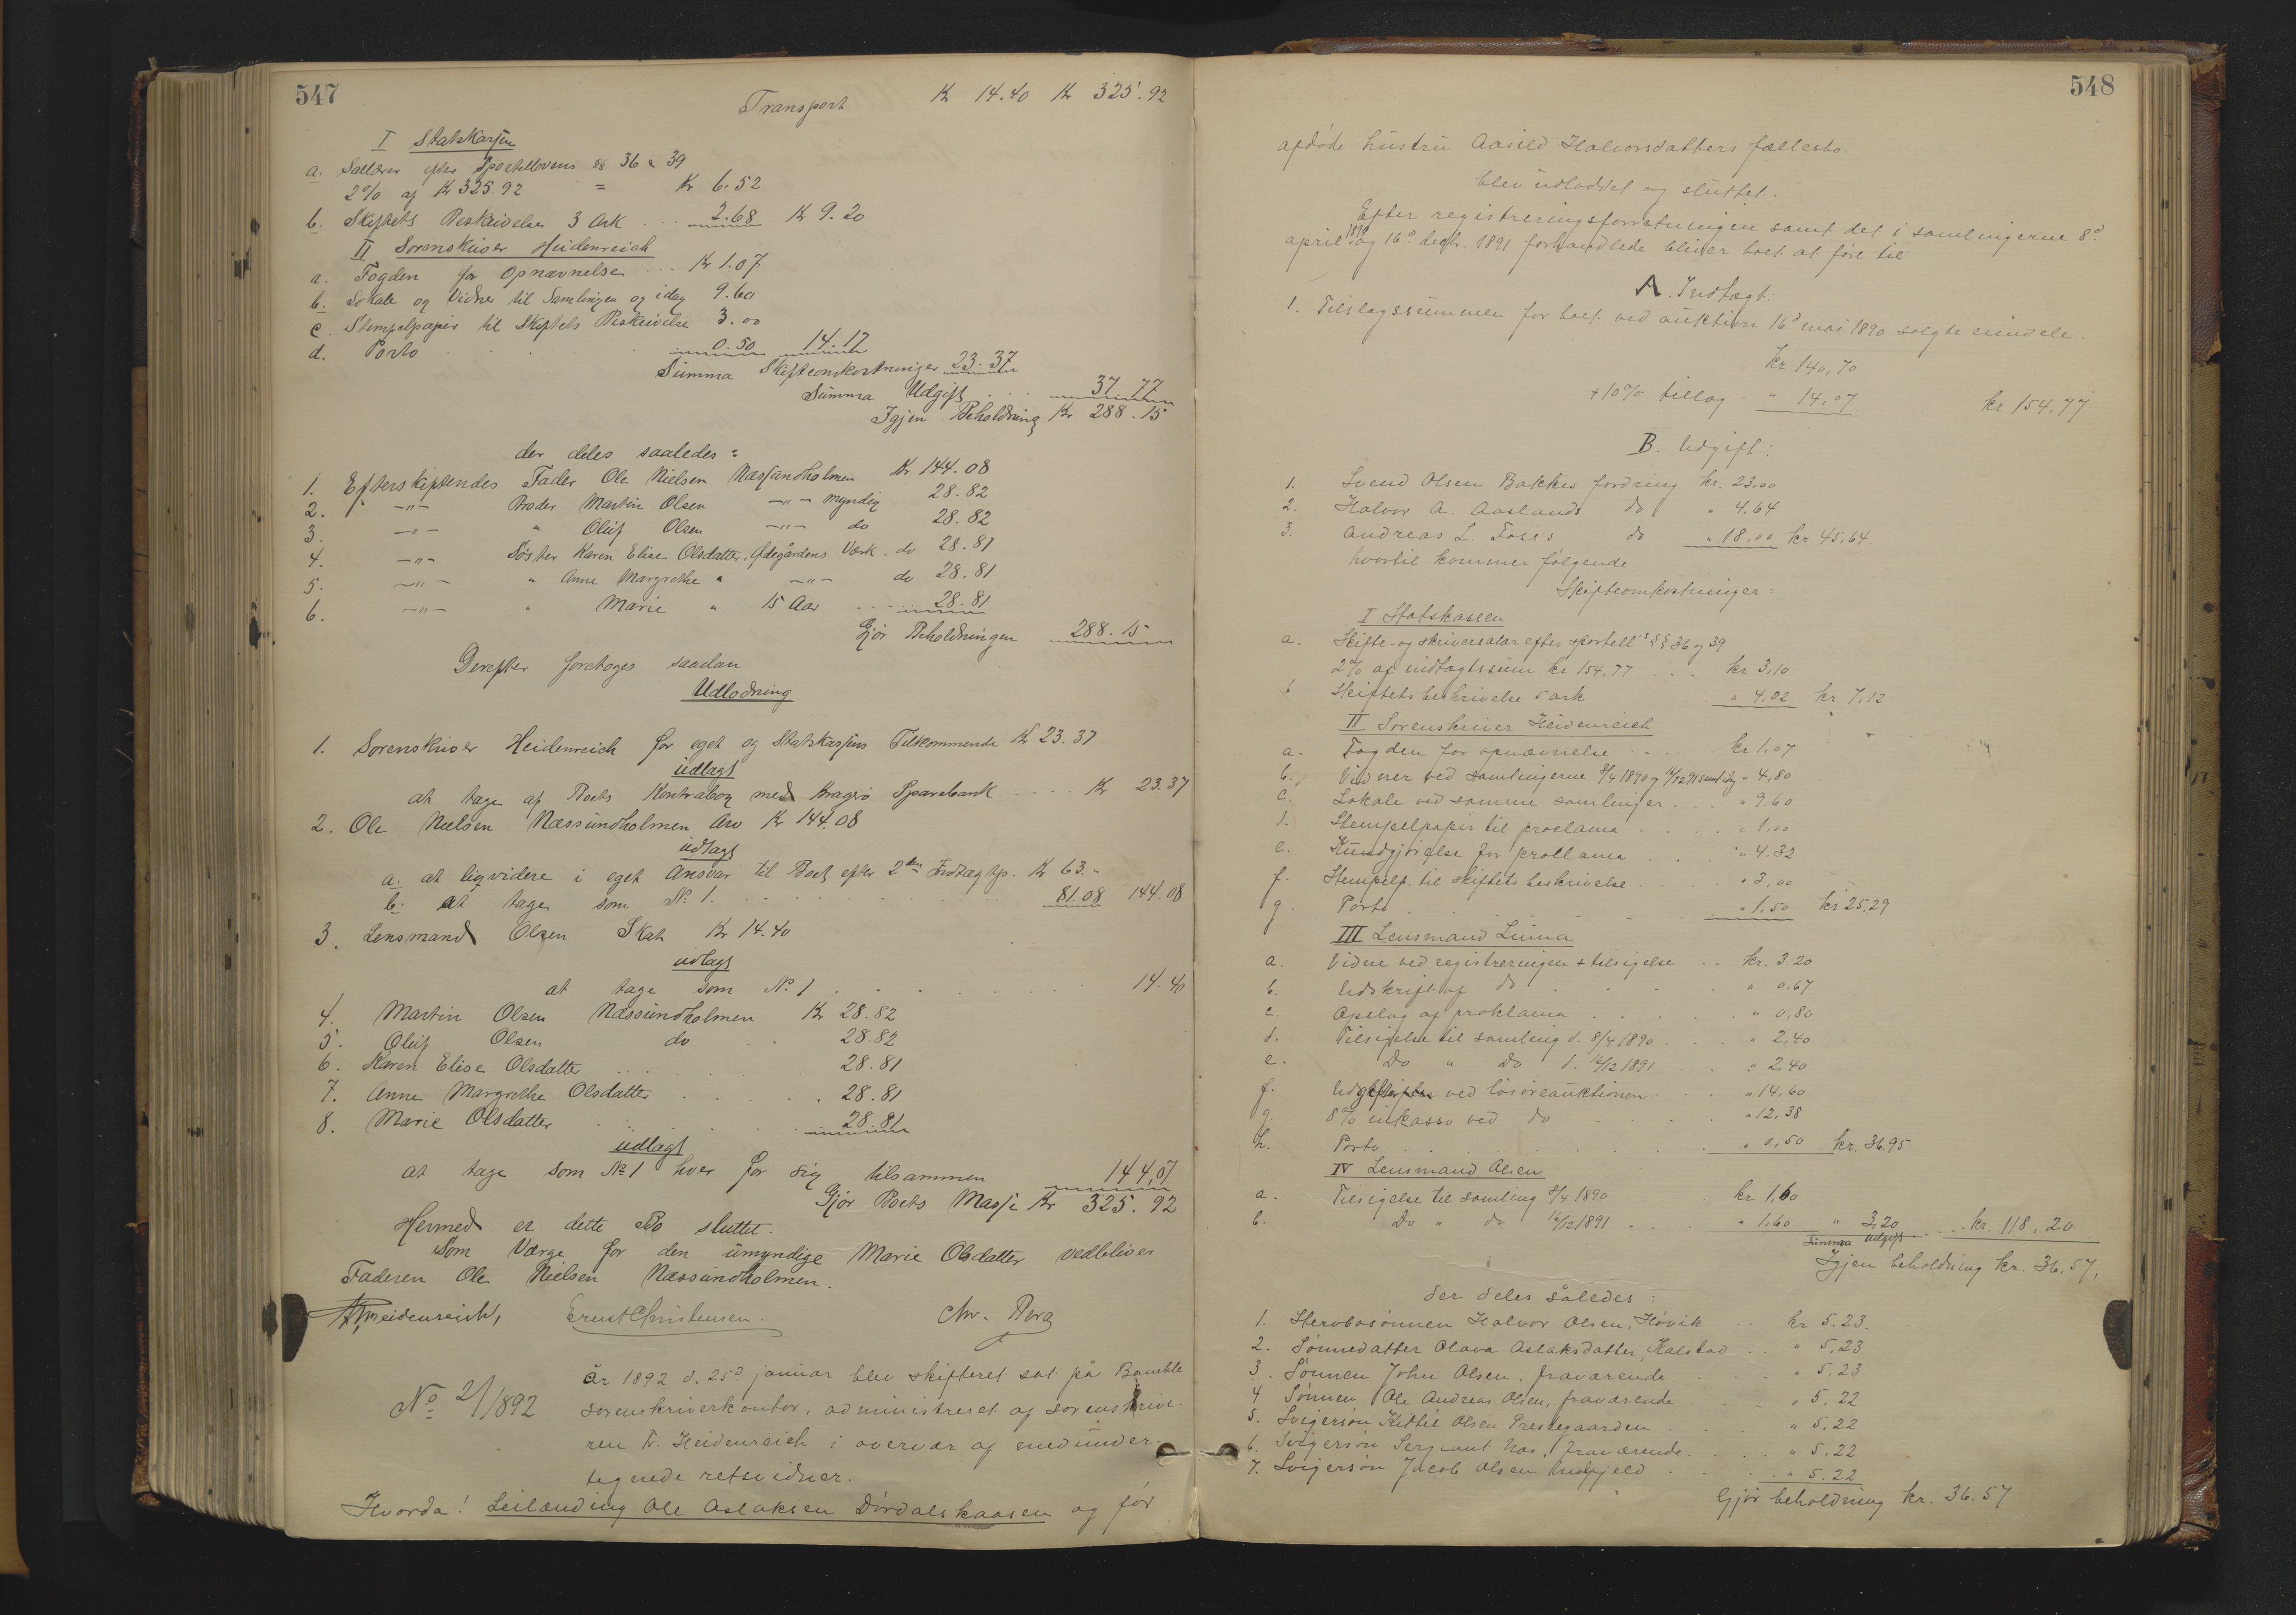 547
Transport Kr 14.40 Kr 325.92
I Statskassen
a. Sallærer efter Sportellovens §§ 36 & 39
2% af Kr 325.92 = Kr 6.52
b. Skiftets Beskrivelse 3 Ark ... 2.68 Kr 9.20
II Sorenskriver Heidenreich
a. Fogden for Opnævnelse ... Kr 1.07
b. Lokale og Vidner til Samlingen og idag 9.60
c. Stempelpapir til Skiftets Beskrivelse 3.00
d. Porto . . . . 0.50 14.17
Summa Skifteomkostninger 23.37
Summa Udgift . . . 37.77
Igjen Beholdning Kr 288.15
der deles saaledes:
1. Efterskiftendes Fader Ole Nielsen Næssundholmen Kr 144.08
2. -"- Broder Martin Olsen -"- myndig 28.82
3. -"- " Oluf Olsen -"- do 28.82
4. -"- Søster Karen Elise Olsdatter, Ødegårdens Værk. do 28.81
5. -"- " Anne Margrethe " -"- do 28.81
6. -"- " Marie " 15 Aar .... 28.81
Gjør Beholdningen 288.15
Derefter foretages saadan
Udlodning
1. Sorenskriver Heidenreich for eget og Statskassens Tilkommende Kr 23.37
udlagt
at tage af Boets Kontrabog med Kragerø Sparebank .... Kr 23.37
2. Ole Nielsen Næssundholmen Arv Kr 144.08
udlagt
a. at liqvidere i eget Ansvar til Boet efter 2den Indtægtsp. Kr 63."
b. at tage som No 1. . . . . 81.08 144.08
3. Lensmand Olsen Skat Kr 14.40
udlagt
at tage som No 1 . . . . . 14.40
4. Martin Olsen Næssundholmen Kr 28.82
5. Oluf Olsen do . . 28.82
6. Karen Elise Olsdatter . . . 28.81
7. Anne Margrethe Olsdatter . . . . 28.81
8. Marie Olsdatter . . . . 28.81
udlagt
at tage som No 1 hver for sig tilsammen 144,07
Gjør Boets Masse Kr 325.92
Hermed er dette Bo sluttet.
Som Værge for den umyndige Marie Olsdatter vedbliver
Faderen Ole Nielsen Næssundholmen.
Heidenreich, Ernst Christensen. Chr. Borg
No 2/1892
År 1892 d. 25d januar blev skifteret sat på Bamble
sorenskriverkontor, administreret af sorenskrive-
ren Fr. Heidenreich i overvær af medunder-
tegnede retsvidner.
Hvorda! Leilænding Ole Aslaksen Dördalskaasen og før
548
afdøde hustru Aasild Halvorsdatters fællesbo.
blev udloddet og sluttet.
Efter registreringsforretningen samt det i samlingerne 8d
april 1890 og 16d decbr. 1891 forhandlede bliver boet at føre til
A. Indtægt:
1. Tilslagssummen for boet ved auktion 16d mai 1890 solgte eiendele.
kr 140,70
+10% tillæg " 14,07 kr 154,77
B. Udgift:
1. Svend Olsen Bakkes fordring kr. 23,00
2. Halvor A. Aaslands do " 4.64
3. Andreas L. Foss's do " 18,00 kr 45,64.
hvortil kommer følgende
Skifteomkostninger:
I Statskassen
a. Skifte- og skriversalær efter sportell's §§ 36 og 39
2% af indtægtssum kr 154,77 . . . kr 3,10
b Skiftets beskrivelse 5 ark " 4.02 kr 7,12
II Sorenskriver Heidenreich
a. Fogden for opnævnelse . . . kr 1.07
b. Vidner ved samlingerne 8/4 1890 og 16/12 91 samt idag " 4,80
c. Lokale ved samme samlinger . . . " 9.60
d. Stempelpapir til proclama . . . " 1,00
e. Kundgjørelse for proklama . . . " 4.32
f. Stempelp. til skiftets beskrivelse . . . " 3,00
g. Porto . . . . " 1.50 kr 25,29
III Lensmand Linna
a. Vidne ved registreringen + tilsigelse .. kr. 3.20
b. Udskrift af do . . . . " 0,67
c. Opslag af proklama . . . . " 0,80
d. Tilsigelse til samling d. 8/4 1890 . . " 2,40
e. Do " Do d. 16/12 1891 . . " 2,40
f. Udgifter ved løsøreauktionen . . . " 14,60
g. 8% inkasso ved do . . . " 12,38
h. Porto . . . . " 0,50 kr. 36,95
IV Lensmand Olsen
a. Tilsigelse til samling 8/4 1890 kr 1,60
b. Do " do 16/12 1891 . . . " 1.60 " 3,20
Summa Udgift . . . kr. 118,20
Igjen beholdning kr. 36,57,
der deles således:
1. Stervbosønnen Halvor Olsen, Høvik .. kr 5.23.
2. Sønnedatter Olava Aslaksdatter, Kalstad .. " 5,23
3. Sønnen John Olsen, fraværende . . . " 5,23
4 Sønnen Ole Andreas Olsen, fraværende . . " 5,22
5. Svigersøn Kittil Olsen Prestegaarden . . " 5,22
6. Svigersøn Sergeant Nas, fraværende . . " 5.22
7. Svigersøn Jacob Olsen . . . " 5.22
Gjør beholdning kr. 36.57